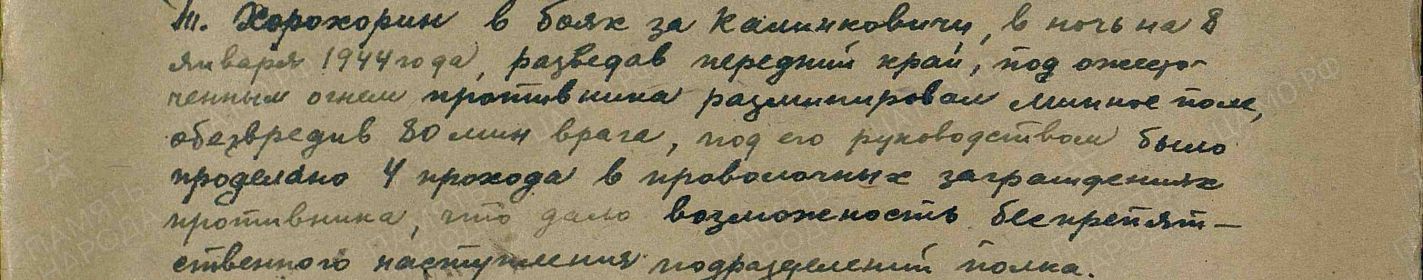 т. Хорохорин в боях за Калинковичи, в ночь на 8
января 1944 года, разведав передний край, под ожесто-
ченным огнем противника разминировал минное поле,
обезвредив 80 мин врага, под его руководством было
проделано 4 прохода в проволочных заграждениях
противника, что дало возможность беспрепят-
ственного наступления подразделений полка.